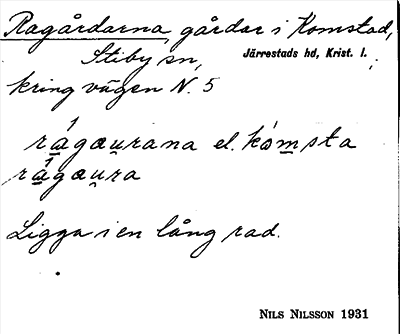 Ragårdarna, gårdar i Komstad,
Stiby sn, Järrestads hd, Krist. l.;
kring vägen N. 5
rágæu̯rana el. kómsta
rágæu̯ra
Ligga i en lång rad.
NILS NILSSON 1931